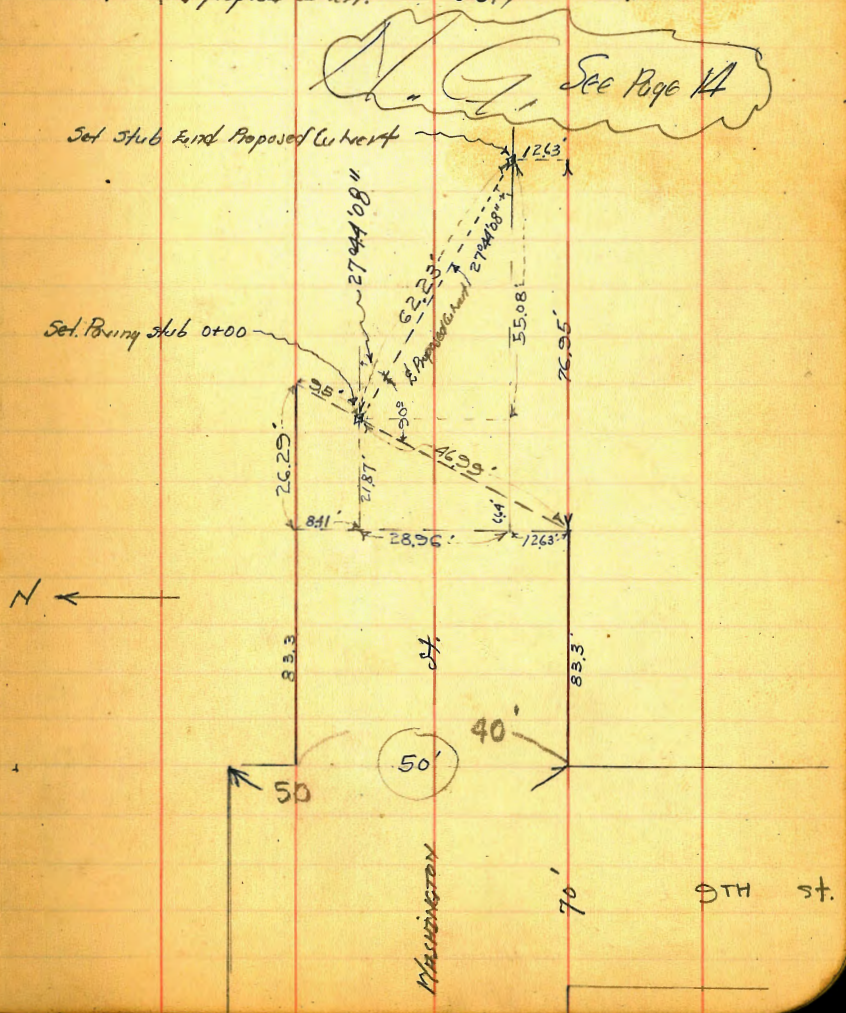 N.G. See Page 14
Set Stub End Proposed Culvert
12.63'
27°44'08"
27°44'08"
62.23'
℄ Proposed Culvert
55.08'
76.95'
Set. Paving stub 0+00
9.5'
90°
46.99'
26.29'
21.87'
6.64'
8.41'
28.96'
12.63'
N
83.3
St.
83.3'
40'
50'
50
WASHINGTON
70'
9TH St.